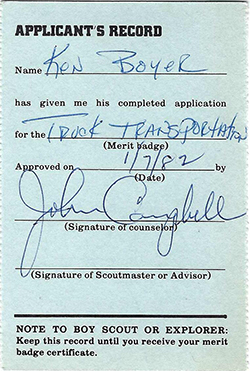 APPLICANT'S RECORD
Name Ken Boyer
has given me his completed application
for the Truck Transportation
(Merit badge)
Approved on 1/7/82 by
(Date)
John Campbell
(Signature of counselor)
(Signature of Scoutmaster or Advisor)
NOTE TO BOY SCOUT OR EXPLORER:
Keep this record until you receive your merit
badge certificate.